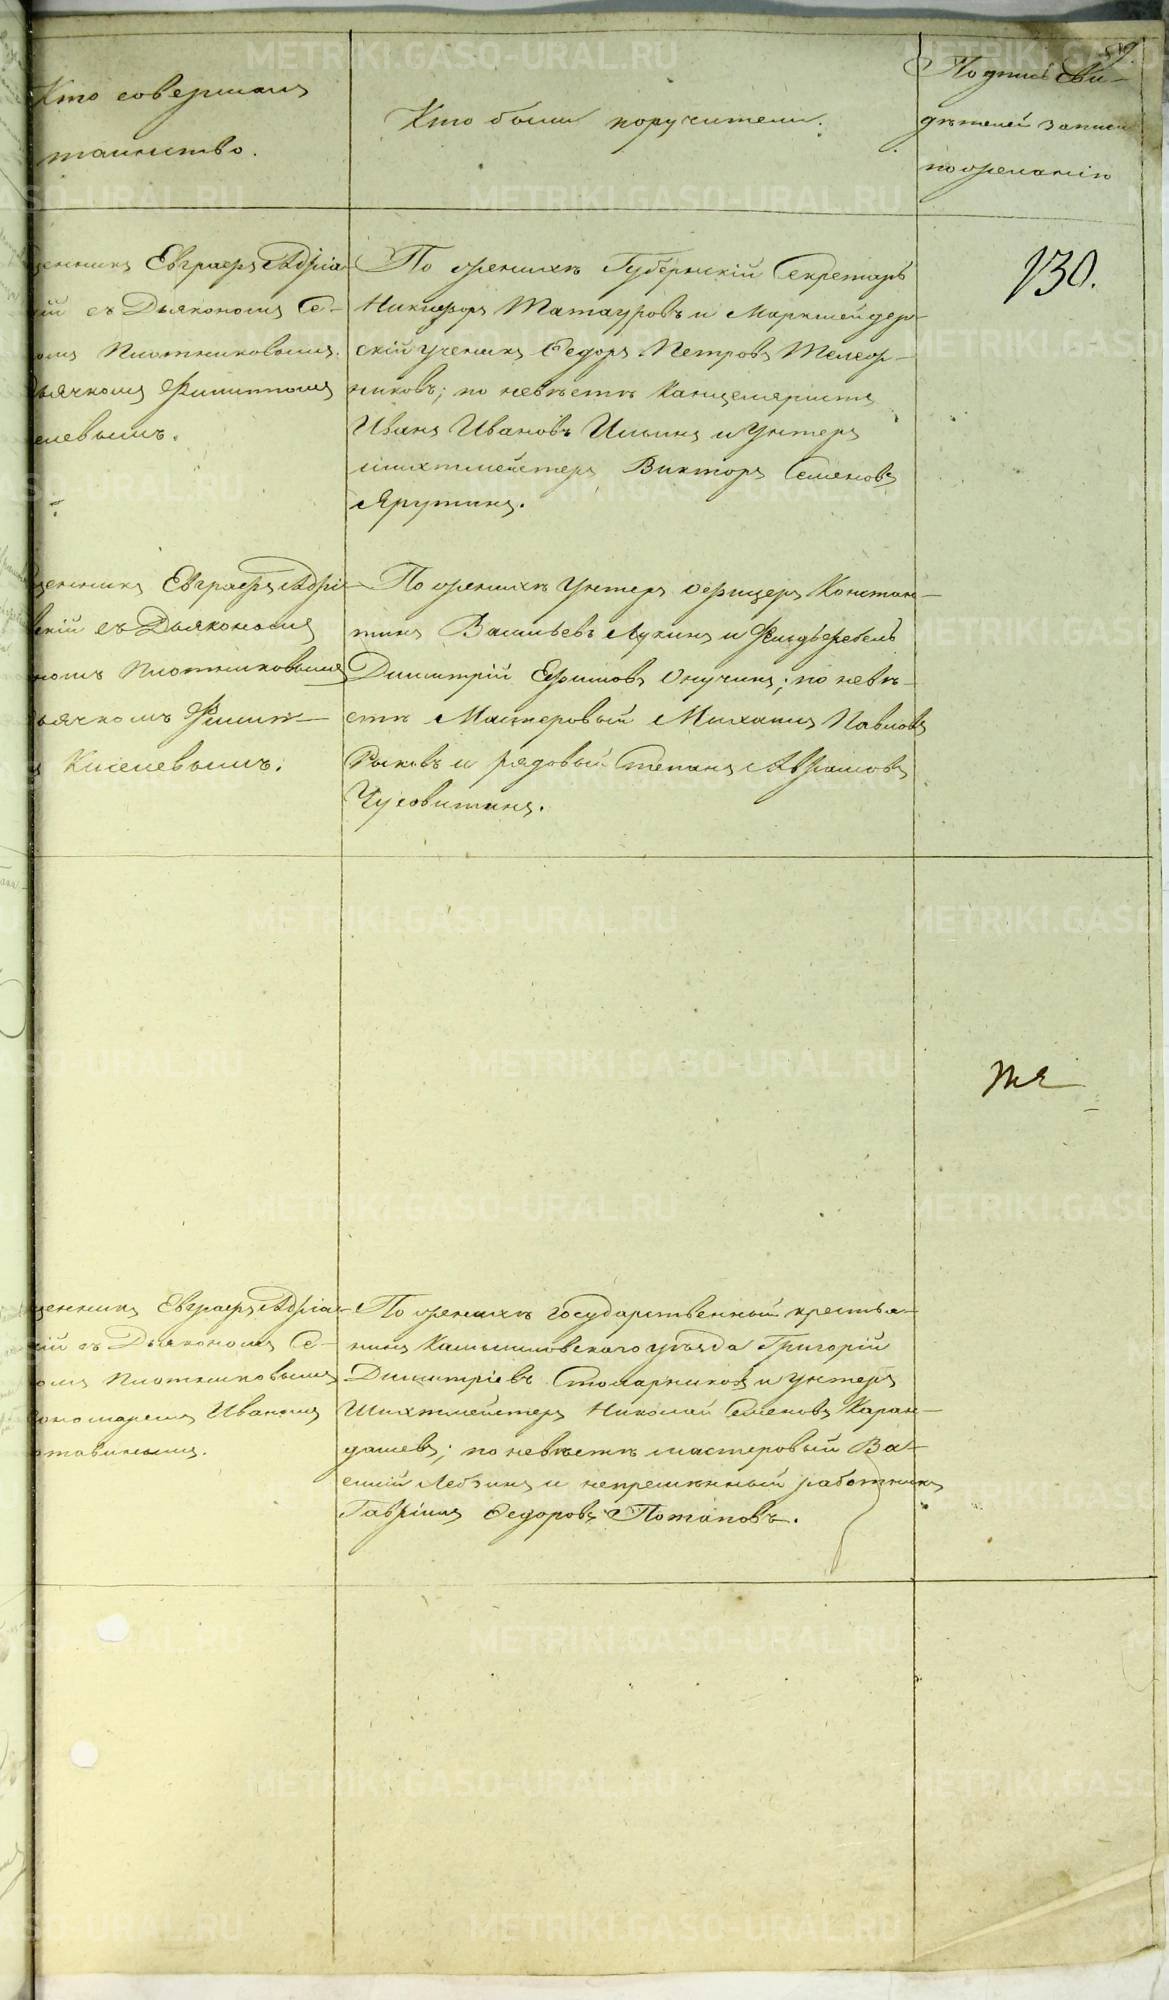 Кто совершалъ
таинство.
Кто были поручители.
Подпись сви-
дѣтелей записи
по желанію
щенникъ Евграфъ Адріа-
кій съ Діякономъ Се-
омъ Плотниковымъ.
ьячкомъ Филиппомъ
елевымъ.
По женихѣ Губернскій Секретарь
Никифоръ Татауровъ и Маркшейдер-
скій ученикъ Ѳедоръ Петровъ Тележ-
никовъ; по невѣстѣ Канцеляристъ
Иванъ Ивановъ Ильинъ и Унтеръ
шихтмейстеръ Викторъ Семеновъ
Ярутинъ.
130.
щенникъ Евграфъ Адрі-
скій съ Діякономъ
номъ Плотниковымъ
ьячкомъ Филип-
ъ Киселевымъ.
По женихѣ Унтеръ офицеръ Констан-
тинъ Васильевъ Лукинъ и Фельдфебель
Димитрій Ефимовъ Онучинъ; по невѣ-
стѣ Мастеровый Михаилъ Павловъ
Рыковъ и рядовый Степанъ Аврамовъ
Чусовитинъ.
щенникъ Евграфъ Адріа-
кій съ Діякономъ Се-
омъ Плотниковымъ
ономаремъ Иваномъ
отавинымъ.
По женихѣ государственный крестья-
нинъ Камышловскаго уѣзда Григорій
Димитріевъ Столарниковъ и Унтеръ
Шихтмейстеръ Николай Семеновъ Каран-
дашевъ; по невѣстѣ мастеровый Ва-
силій Лебзинъ и непремѣнный работникъ
Гаврілъ Ѳедоровъ Потаповъ.
METRIKI.GASO-URAL.RU